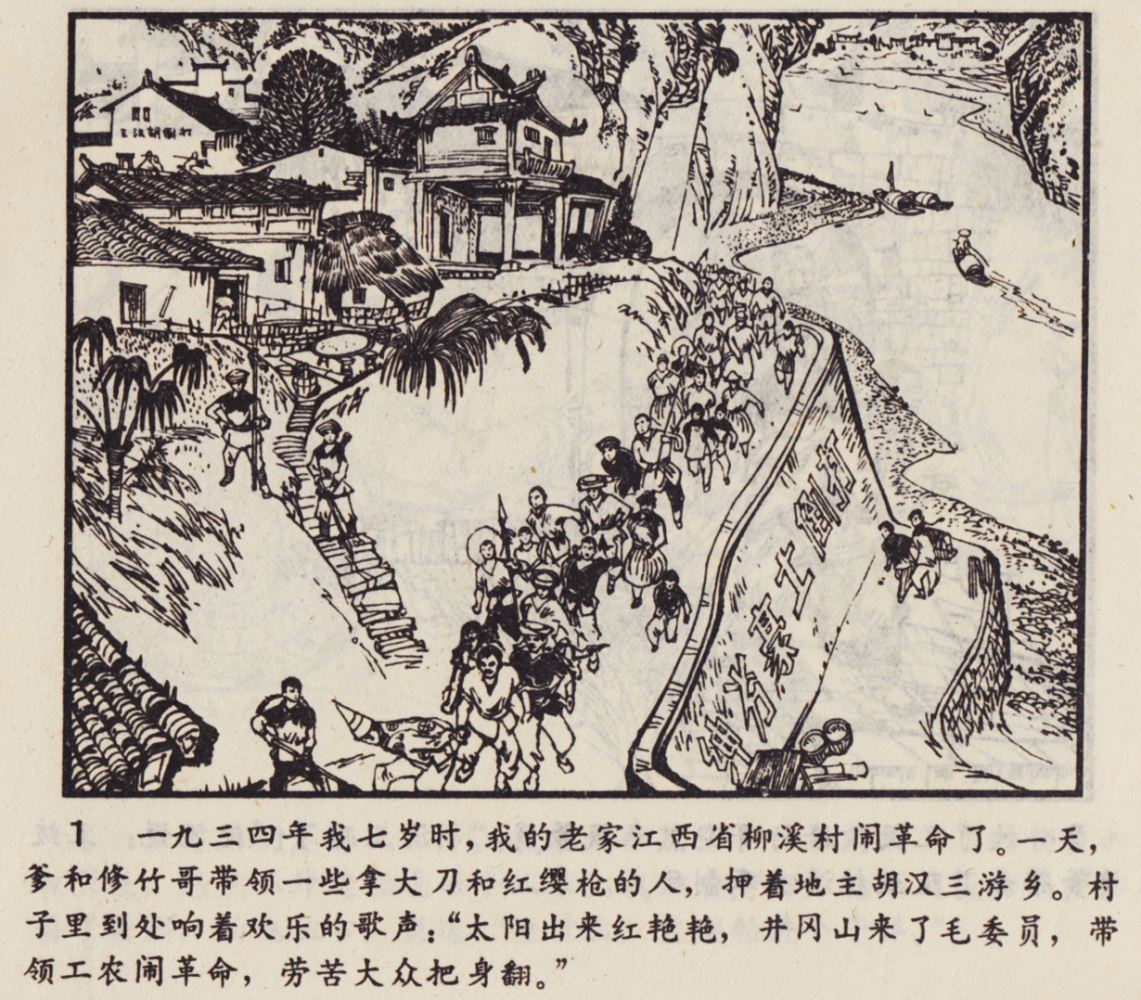 三汉胡倒打
田分豪土倒打
1 一九三四年我七岁时，我的老家江西省柳溪村闹革命了。一天，
爹和修竹哥带领一些拿大刀和红缨枪的人，押着地主胡汉三游乡。村
子里到处响着欢乐的歌声：“太阳出来红艳艳，井冈山来了毛委员，带
领工农闹革命，劳苦大众把身翻。”